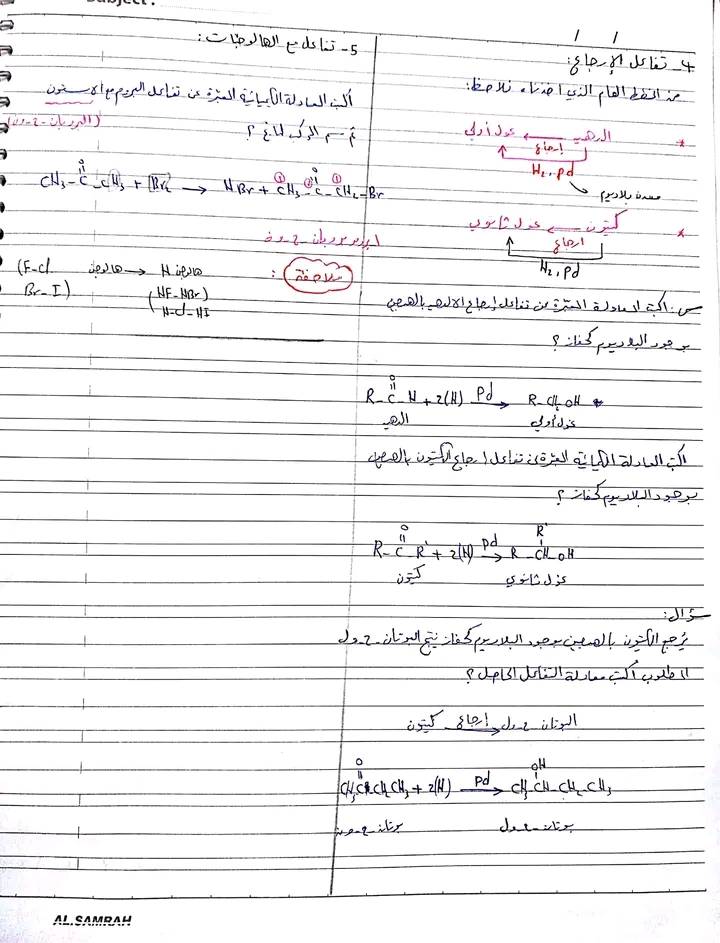 Subject :
/ /
4- تفاعل الإرجاع:
من المخطط العام الذي أخذناه نلاحظ:
* الدهيد ← غول أولي
إرجاع
H₂, pd
معدن بلاديوم
* كيتون ← غول ثانوي
ارجاع
H₂, pd
س: اكتب المعادلة المعبرة عن تفاعل إرجاع الالدهيد بالهيدروجين
بوجود البلاديوم كحفاز ؟
O
R-C-H + 2(H) Pd→ R-CH₂OH
الدهيد غول أولي
اكتب المعادلة الكيميائية المعبرة عن تفاعل إرجاع الكيتون بالهيدروجين
بوجود البلاديوم كحفاز ؟
O R'
R-C-R' + 2(H) pd→ R-CH-OH
كيتون غول ثانوي
سؤال:
يُرجع الكيتون بالهيدروجين بوجود البلاديوم كحفاز ينتج البوتان-2-ول
المطلوب أكتب معادلة التفاعل الحاصل ؟
البوتان-2-ول إرجاع كيتون
O OH
CH₃CCH₂CH₃ + 2(H) Pd→ CH₃-CH-CH₂-CH₃
بوتان-2-ون بوتان-2-ول
5- تفاعل مع الهالوجينات:
أكتب المعادلة الكيميائية المعبرة عن تفاعل البروم مع الاسيتون
(البروبان-2-ون)
ثم سم المركب الناتج ؟
O O
CH₃-C-CH₃ + Br₂ → HBr + CH₃-C-CH₂-Br
③ ② ①
1-برومو بروبان-2-ون
ملاحظة :
هالوجين → هالوجين H
(F-Cl
Br-I)
(HF-HBr)
H-Cl-HI
AL.SAMRAH